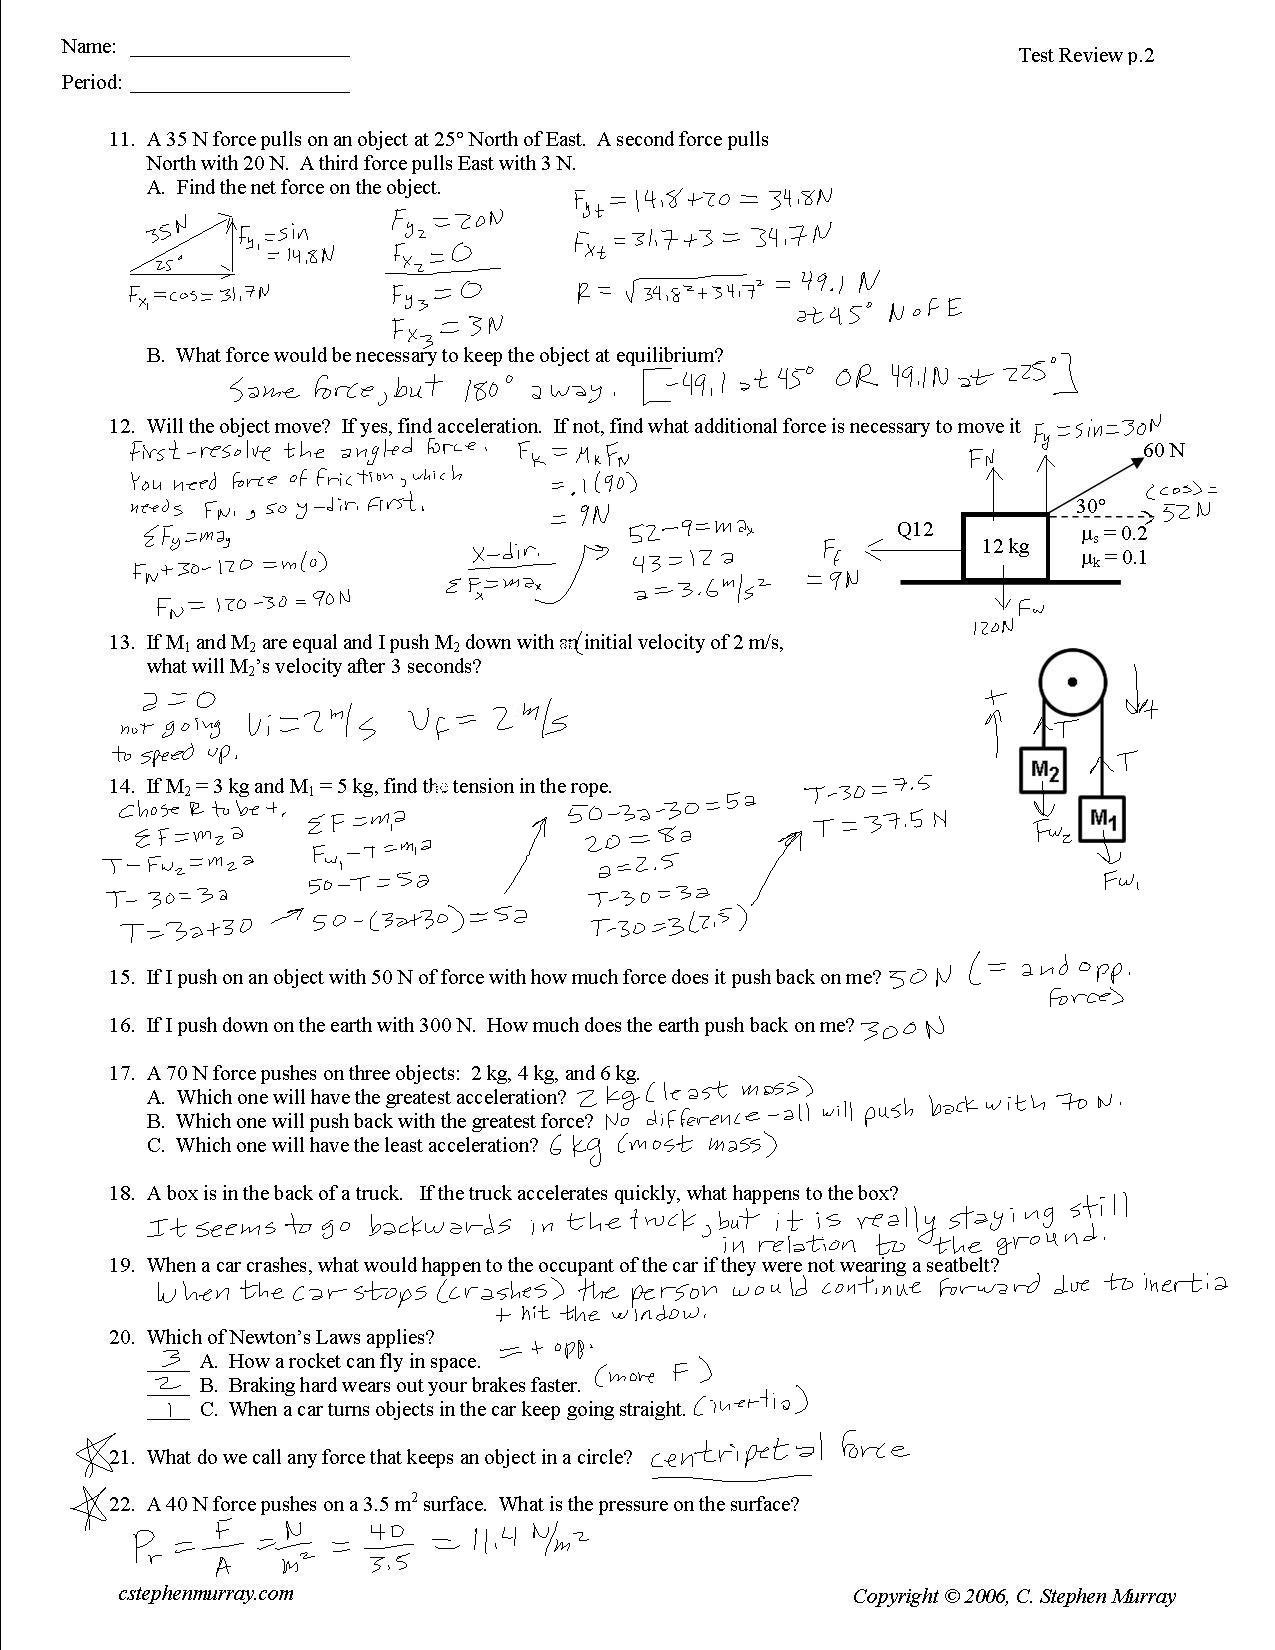 Name:
Test Review p.2
Period:
11. A 35 N force pulls on an object at 25° North of East. A second force pulls
North with 20 N. A third force pulls East with 3 N.
A. Find the net force on the object.
35N
25°
Fy₁ = sin
= 14.8N
Fx₁ = cos = 31.7N
Fy₂ = 20N
Fx₂ = 0
Fy₃ = 0
Fx₃ = 3N
Fyt = 14.8 + 20 = 34.8N
Fxt = 31.7 + 3 = 34.7N
R = √34.8² + 34.7² = 49.1 N
at 45° N of E
B. What force would be necessary to keep the object at equilibrium?
Same force, but 180° away. [-49.1 at 45° OR 49.1N at 225°]
12. Will the object move? If yes, find acceleration. If not, find what additional force is necessary to move it
First-resolve the angled force.
You need force of friction, which
needs FN, so y-dir. first.
ΣFy = may
FN + 30 - 120 = m(0)
FN = 120 - 30 = 90N
Fk = μkFN
= .1(90)
= 9N
x-dir.
ΣFx = max
52 - 9 = max
43 = 12a
a = 3.6 m/s²
Fy = sin = 30N
FN
60 N
(cos) =
52N
30°
Q12
12 kg
μs = 0.2
μk = 0.1
Ff
= 9N
Fw
120N
13. If M₁ and M₂ are equal and I push M₂ down with an initial velocity of 2 m/s,
what will M₂'s velocity after 3 seconds?
a = 0
not going
to speed up.
Vi = 2 m/s Vf = 2 m/s
+
+
T
T
M₂
M₁
Fw₂
Fw₁
14. If M₂ = 3 kg and M₁ = 5 kg, find the tension in the rope.
Chose R to be +.
ΣF = m₂a
T - Fw₂ = m₂a
T - 30 = 3a
T = 3a + 30
ΣF = m₁a
Fw₁ - T = m₁a
50 - T = 5a
50 - (3a + 30) = 5a
50 - 3a - 30 = 5a
20 = 8a
a = 2.5
T - 30 = 3a
T - 30 = 3(2.5)
T - 30 = 7.5
T = 37.5 N
15. If I push on an object with 50 N of force with how much force does it push back on me? 50N (= and opp.
forces)
16. If I push down on the earth with 300 N. How much does the earth push back on me? 300N
17. A 70 N force pushes on three objects: 2 kg, 4 kg, and 6 kg.
A. Which one will have the greatest acceleration? 2 kg (least mass)
B. Which one will push back with the greatest force? No difference - all will push back with 70 N.
C. Which one will have the least acceleration? 6 kg (most mass)
18. A box is in the back of a truck. If the truck accelerates quickly, what happens to the box?
It seems to go backwards in the truck, but it is really staying still
in relation to the ground.
19. When a car crashes, what would happen to the occupant of the car if they were not wearing a seatbelt?
When the car stops (crashes) the person would continue forward due to inertia
+ hit the window.
20. Which of Newton's Laws applies?
3 A. How a rocket can fly in space. = + opp.
2 B. Braking hard wears out your brakes faster. (more F)
1 C. When a car turns objects in the car keep going straight. (inertia)
21. What do we call any force that keeps an object in a circle? centripetal force
22. A 40 N force pushes on a 3.5 m² surface. What is the pressure on the surface?
Pr = F/A = N/m² = 40/3.5 = 11.4 N/m²
cstephenmurray.com
Copyright © 2006, C. Stephen Murray